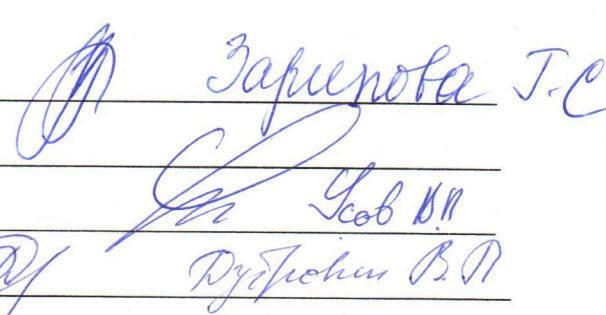 Зарипова Г.С
Усов В.П
Дубровин В.П